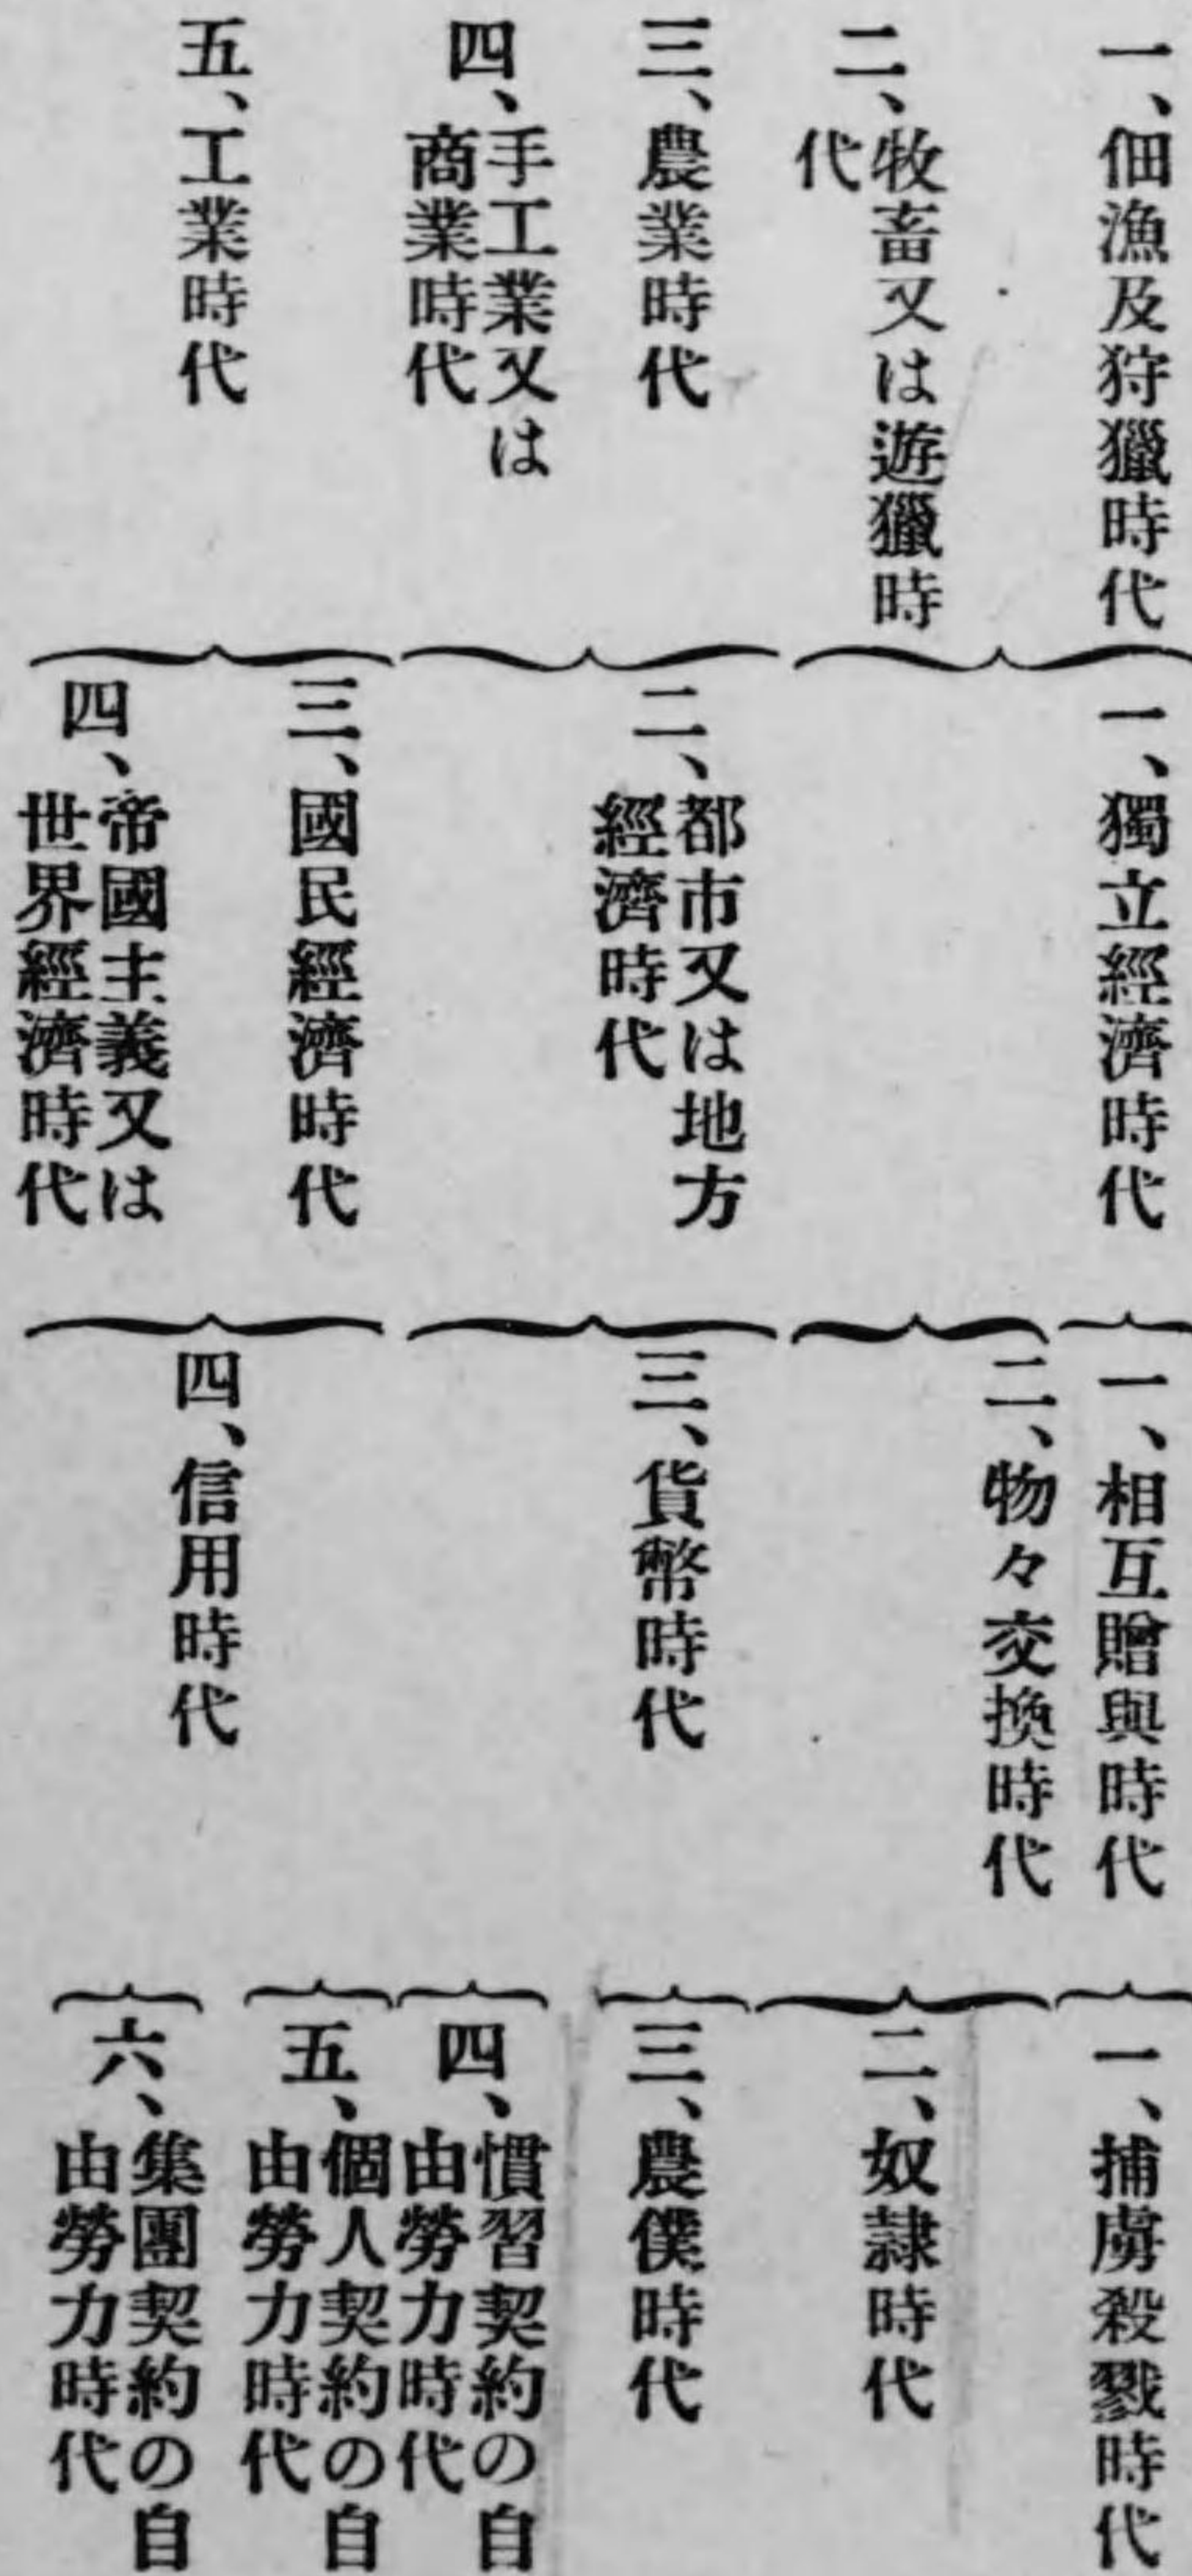 一、佃漁及狩獵時代
二、牧畜又は遊獵時
代
三、農業時代
四、手工業又は
商業時代
五、工業時代
一、獨立經濟時代
二、都市又は地方
經濟時代
三、國民經濟時代
四、帝國主義又は
世界經濟時代
一、相互贈與時代
二、物々交換時代
三、貨幣時代
四、信用時代
一、捕虜殺戮時代
二、奴隷時代
三、農僕時代
四、慣習契約の自
由勞力時代
五、個人契約の自
由勞力時代
六、集團契約の自
由勞力時代